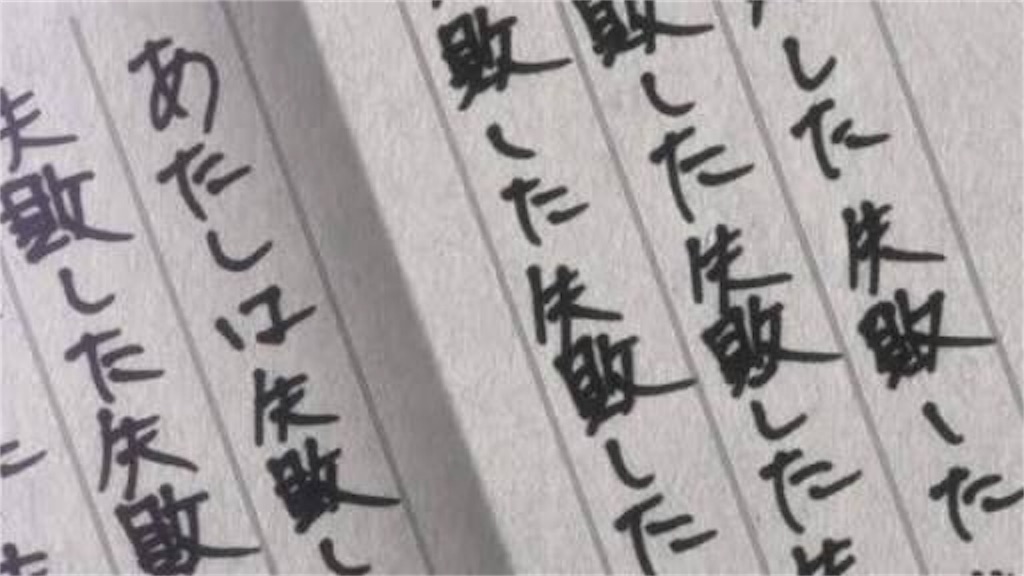 した失敗した
敗した失敗した
敗した失敗した
あたしは失敗し
失敗した失敗